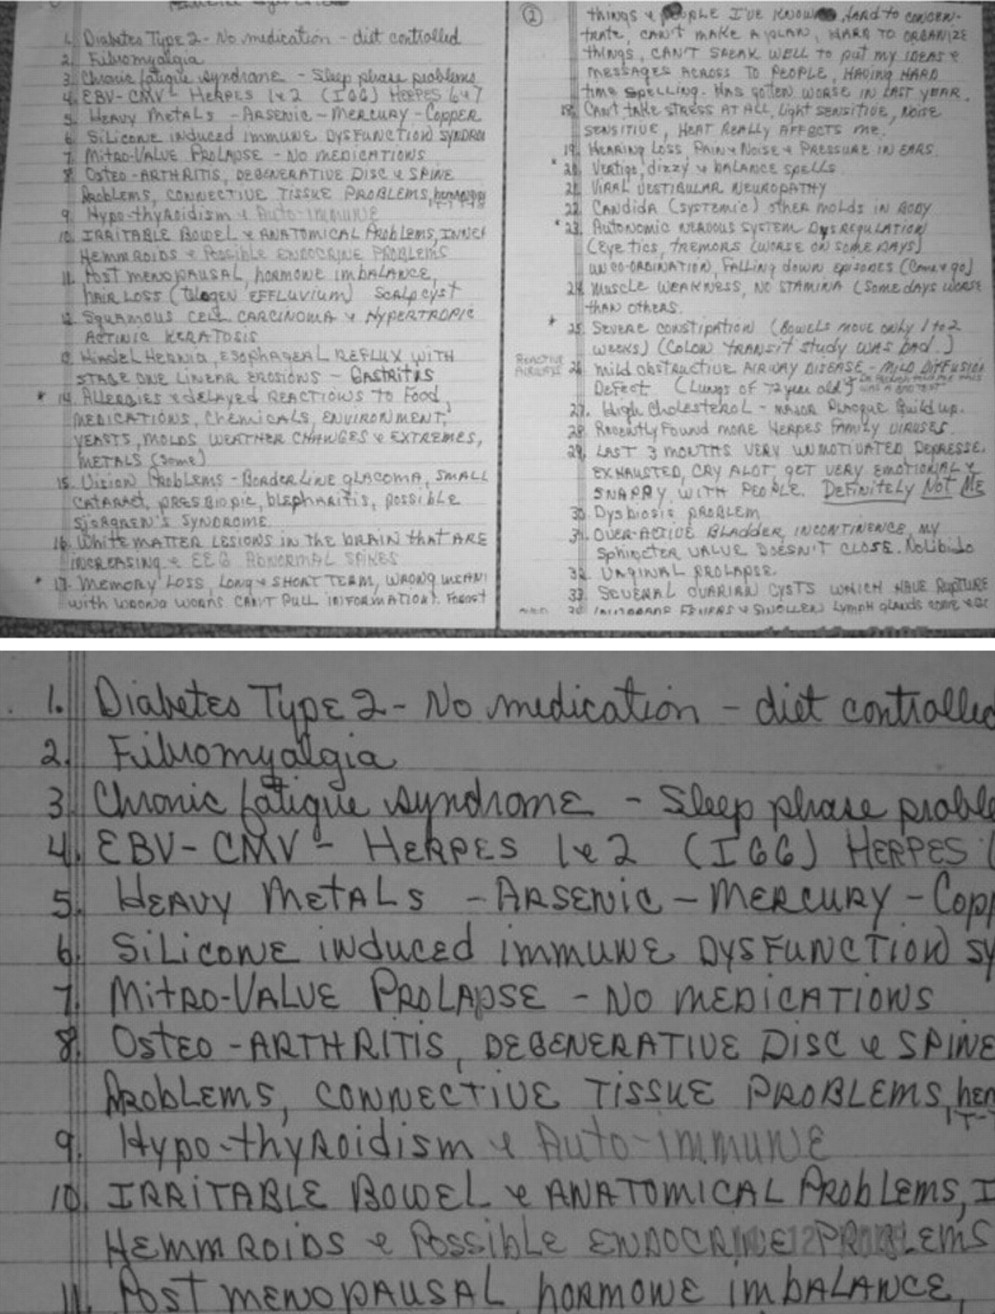 1. Diabetes Type 2 - No medication - diet controlled
2. Fibromyalgia
3. Chronic fatigue syndrome - Sleep phase problems
4. EBV - CMV - HERPES 1 & 2 (IGG) HERPES 6 & 7
5. HEAVY METALS - ARSENIC - MERCURY - COPPER
6. SILICONE induced immune DYSFUNCTION SYNDROM
7. MITRO-VALUE PROLAPSE - NO MEDICATIONS
8. OSTEO-ARTHRITIS, DEGENERATIVE DISC & SPINE
PROBLEMS, CONNECTIVE TISSUE PROBLEMS,
9. Hypo-thyroidism & Auto-immune
10. IRRITABLE BOWEL & ANATOMICAL PROBLEMS, INNER
HEMMROIDS & POSSIBLE ENDOCRINE PROBLEMS
11. POST MENOPAUSAL, HORMONE IMBALANCE,
HAIR LOSS (Telogen EFFLUVIUM) Scalp cyst
12. SQUAMOUS CELL CARCINOMA & HYPERTROPIC
ACTINIC KERATOSIS
13. HERNIA, ESOPHAGEAL REFLUX WITH
STAGE ONE LINEAR EROSIONS - GASTRITIS
* 14. ALLERGIES & delayed REACTIONS TO Food,
MEDICATIONS, CHEMICALS, ENVIRONMENT,
YEASTS, MOLDS, WEATHER CHANGES & EXTREMES,
METALS (some)
15. Vision Problems - BORDERLINE GLACOMA, SMALL
CATARACT, PRESBIOPIC, blepharitis, possible
SJORGREN'S SYNDROME
16. WHITE MATTER LESIONS IN THE BRAIN that ARE
INCREASING & EEG ABNORMAL SPIKES
* 17. MEMORY LOSS, LONG & SHORT TERM, WRONG
with WRONG WORDS CAN'T PULL INFORMATION. FORGET
②
things & PEOPLE I'VE KNOWN, HARD TO CONCEN-
TRATE, CAN'T MAKE A PLAN, HARD TO ORGANIZE
THINGS, CAN'T SPEAK WELL TO put my IDEAS &
MESSAGES ACROSS TO PEOPLE, HAVING HARD
time SPELLING. HAS GOTTEN WORSE IN LAST YEAR.
18. CAN'T TAKE STRESS AT ALL, Light SENSITIVE, NOISE
SENSITIVE, HEAT REALLY AFFECTS me.
19. HEARING LOSS, PAIN & NOISE & PRESSURE IN EARS.
* 20. Vertigo, dizzy & BALANCE SPELLS.
21. VIRAL VESTIBULAR NEUROPATHY
22. CANDIDA (SYSTEMIC) OTHER MOLDS IN BODY
* 23. AUTONOMIC NERVOUS SYSTEM DYSREGULATION
(EYE TICS, TREMORS (WORSE ON SOME DAYS)
UNCO-ORDINATION, FALLING down EPISODES (Come & go)
24. MUSCLE WEAKNESS, NO STAMINA (Some days WORSE
THAN OTHERS.
* 25. SEVERE CONSTIPATION (BOWELS MOVE ONLY 1 to 2
WEEKS) (COLON TRANSIT study WAS BAD.)
REACTIVE
AIRWAYS
26. Mild OBSTRUCTIVE AIRWAY DISEASE - MILD DIFFUSION
DEFECT (LUNGS OF 72 year old)
27. High CHOLESTEROL - MAJOR PLAQUE Build up.
28. RECENTLY FOUND MORE HERPES FAMILY VIRUSES.
29. LAST 3 MONTHS VERY UNMOTIVATED, DEPRESSE,
EXHAUSTED, CRY ALOT, GET VERY EMOTIONAL &
SNAPPY WITH PEOPLE. DEFINITELY NOT ME
30. Dysbiosis PROBLEM
31. OVER-ACTIVE BLADDER, INCONTINENCE, MY
SPHINCTER VALUE DOESN'T CLOSE. No Libido
32. VAGINAL PROLAPSE.
33. SEVERAL OVARIAN CYSTS WHICH HAVE RUPTURE
FEVERS & SWOLLEN LYMPH glands COME & GO
1. Diabetes Type 2 - No medication - diet controlled
2. Fibromyalgia
3. Chronic fatigue syndrome - Sleep phase proble
4. EBV - CMV - HERPES 1 & 2 (IGG) HERPES (
5. HEAVY METALS - ARSENIC - MERCURY - Copp
6. SILICONE induced immune DYSFUNCTION SY
7. MITRO-VALUE PROLAPSE - NO MEDICATIONS
8. OSTEO-ARTHRITIS, DEGENERATIVE DISC & SPINE
PROBLEMS, CONNECTIVE TISSUE PROBLEMS, hen
9. Hypo-thyroidism & Auto-immune
10. IRRITABLE BOWEL & ANATOMICAL PROBLEMS, I
HEMMROIDS & POSSIBLE ENDOCRINE PROBLEMS
11. POST MENOPAUSAL, HORMONE IMBALANCE,